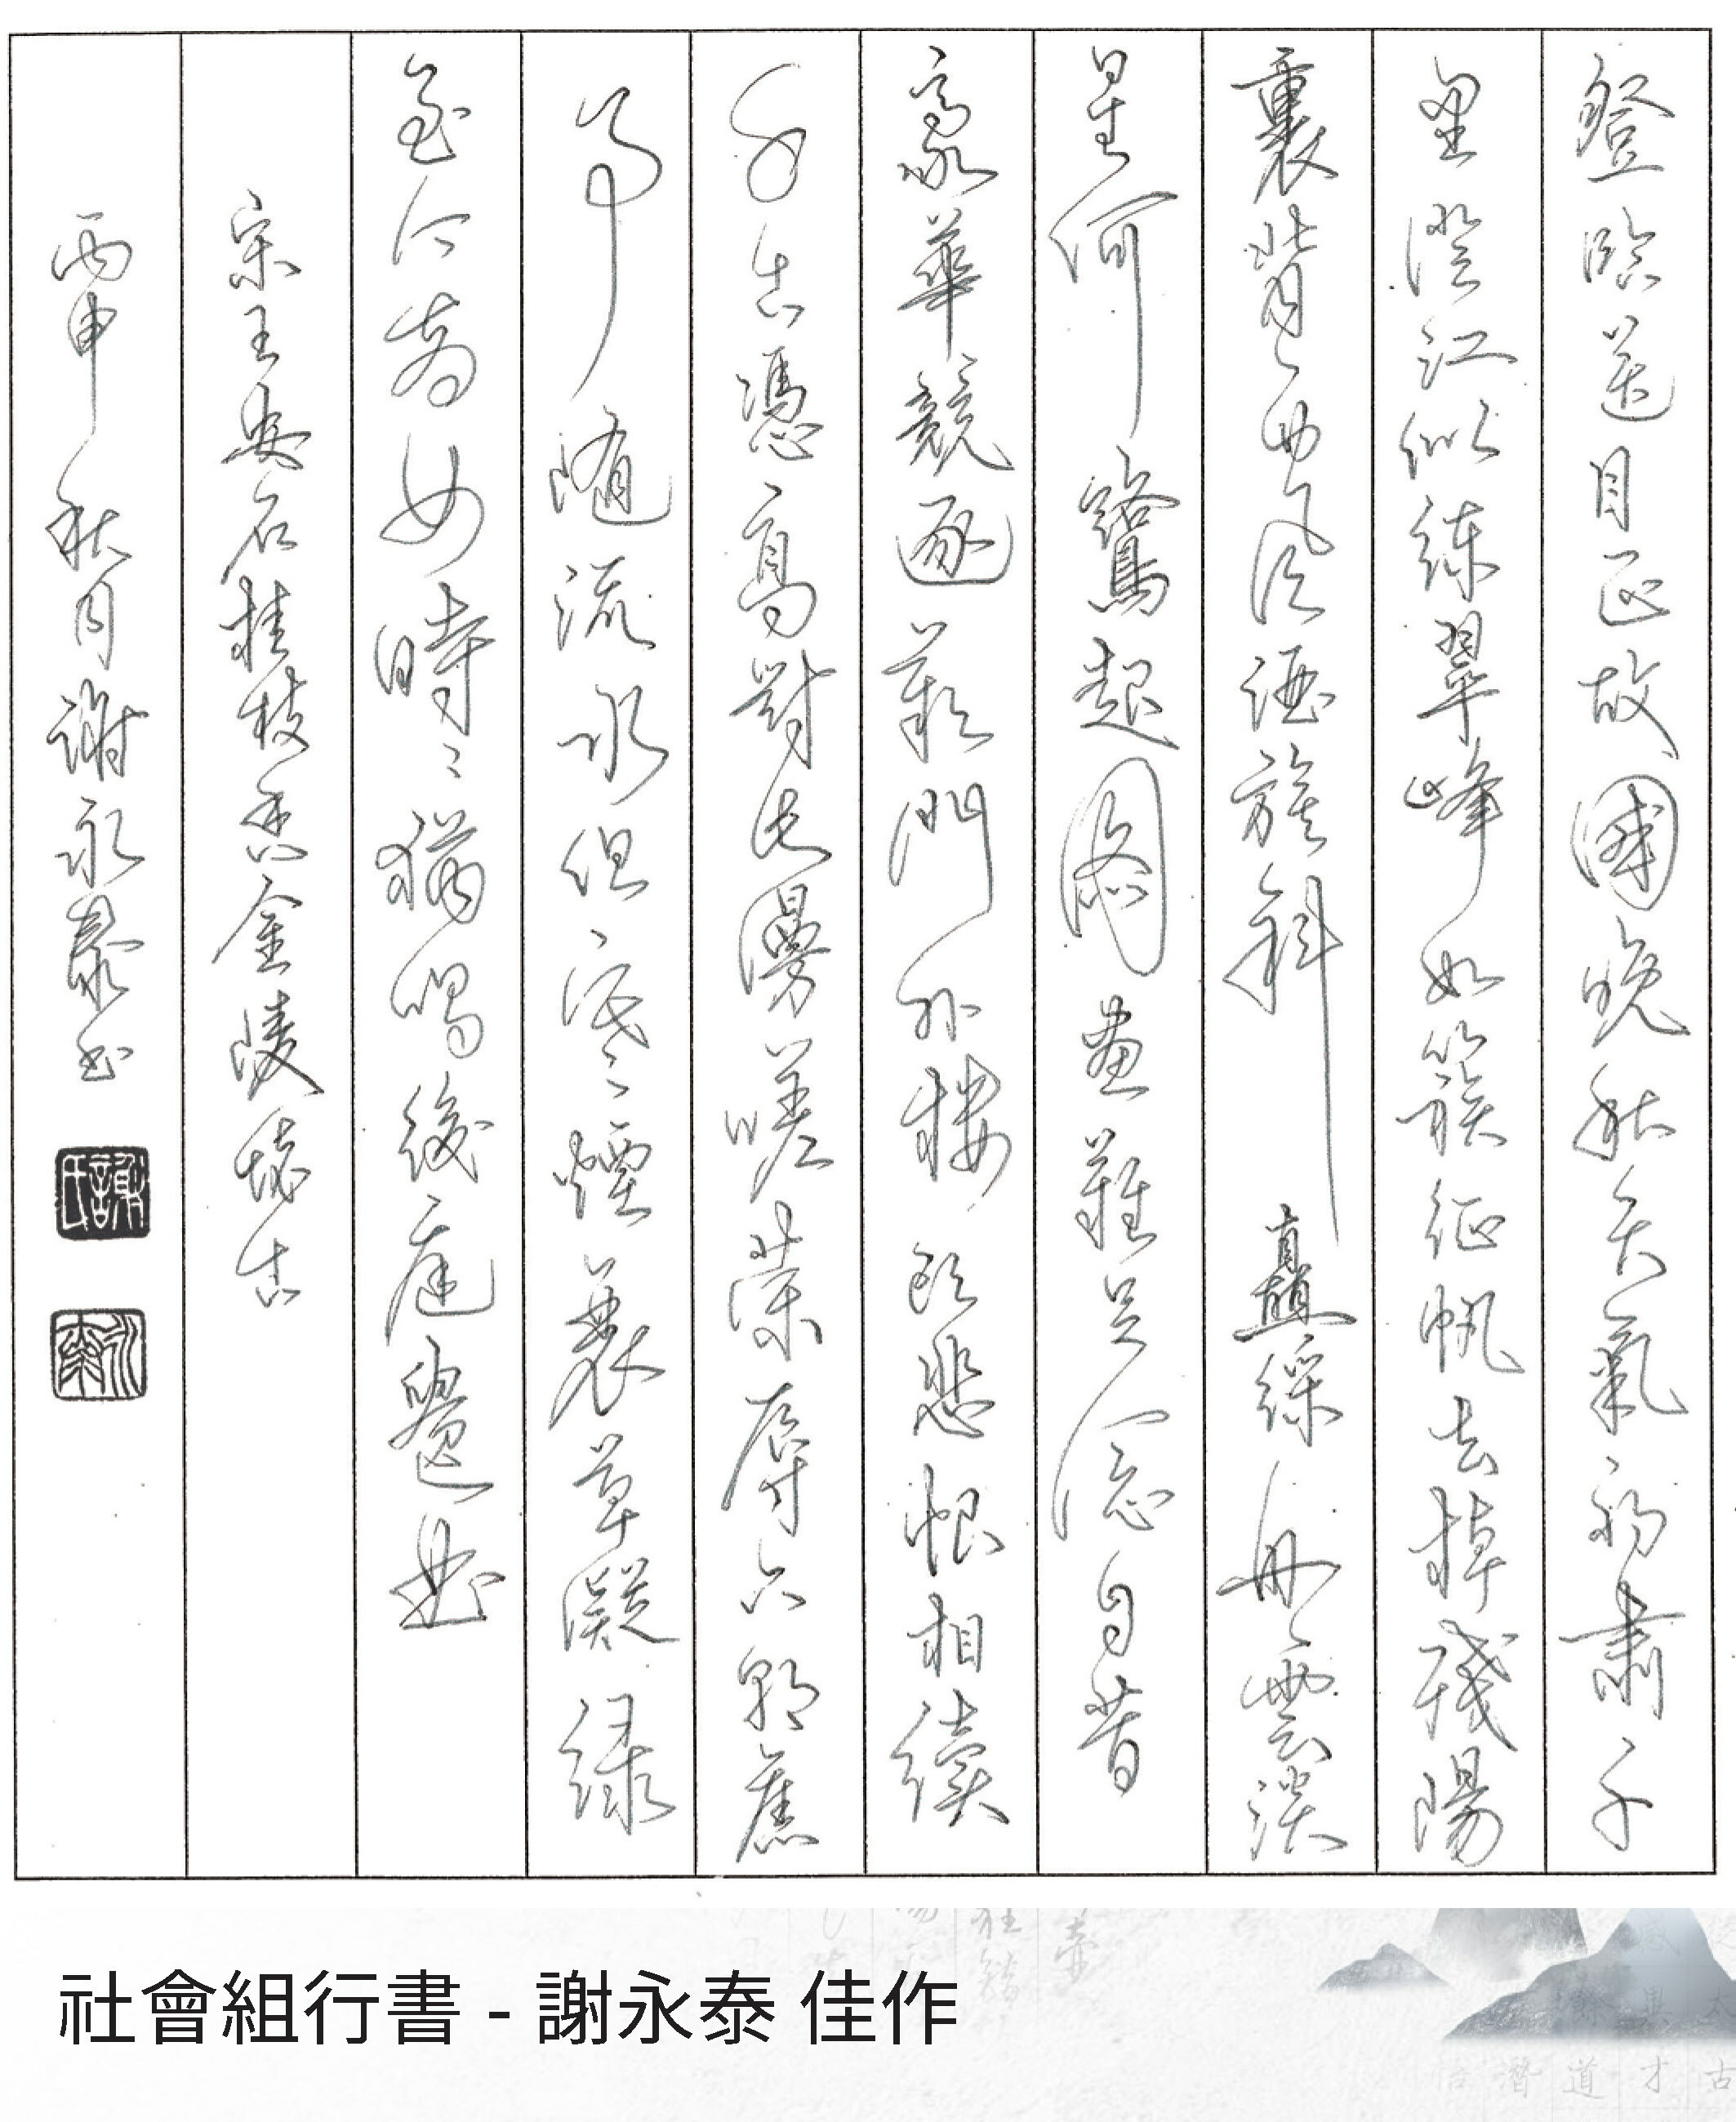 登臨送目正故國晚秋天氣初肅千
里澄江似練翠峰如簇征帆去棹殘陽
裏背西風酒旗斜矗綵舟雲淡
星河鷺起圖畫難足念自昔
豪華競逐歎門外樓頭悲恨相續
千古憑高對此謾嗟榮辱六朝舊
事隨流水但寒煙衰草凝綠
至今商女時時猶唱後庭遺曲
宋王安石桂枝香金陵懷古
丙申秋月謝永泰書
謝氏
永泰
社會組行書 - 謝永泰 佳作